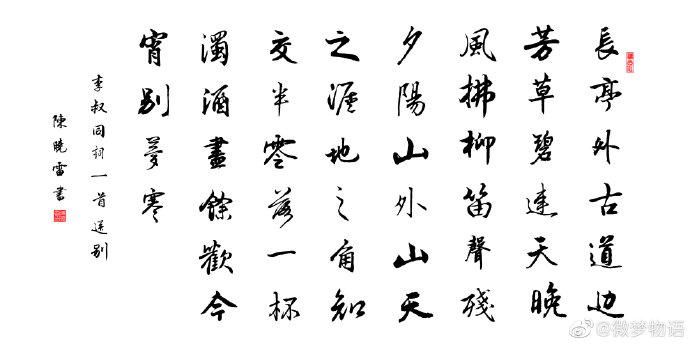 長亭外古道边
芳草碧連天晚
風拂柳笛聲殘
夕陽山外山天
之涯地之角知
交半零落一杯
濁酒盡餘歡今
宵别夢寒
李叔同詞一首送别
陳曉雷書
@微梦物语